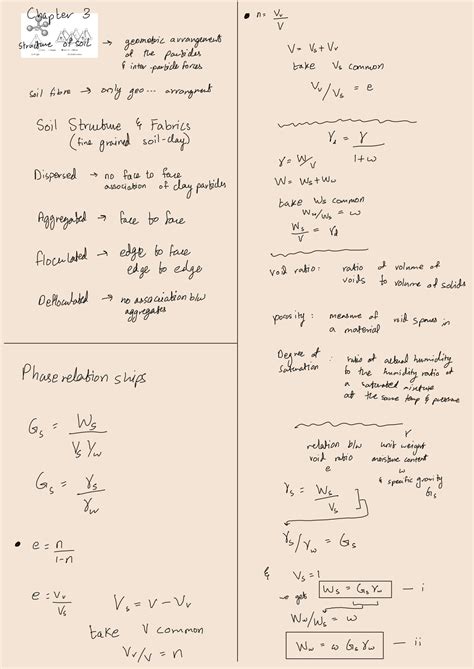 Chapter 3
structure of soil → geometric arrangement
of the particles
& inter-particle forces
soil fibre → only geo... arrangment
Soil Structure & Fabrics
(fine grained soil-clay)
Dispersed → no face to face
association of clay particles
Aggregated → face to face
flocculated → edge to face
edge to edge
Deflocculated → no association b/w
aggregates
Phase relation ships
Gs = Ws / Vs γw
Gs = γs / γw
• e = n / 1-n
e = Vv / Vs
Vs = V - Vv
take V common
Vv/V = n
• n = Vv / V
V = Vs + Vv
take Vs common
Vv/Vs = e
γd = γ / 1+w
γ = W/V
W = Ws + Ww
take Ws common
Ww/Ws = w
Ws / V = γd
void ratio: ratio of volume of
voids to volume of solids
porosity: measure of void spaces in
a material
Degree of saturation: ratio of actual humidity
to the humidity ratio of
a saturated mixture
at the same temp & pressure
relation b/w void ratio e unit weight γ
moisture content w
& specific gravity Gs
γs = Ws / Vs
γs/γw = Gs
& Vs = 1
gets Ws = Gs γw — i
Ww/Ws = w
Ww = w Gs γw — ii